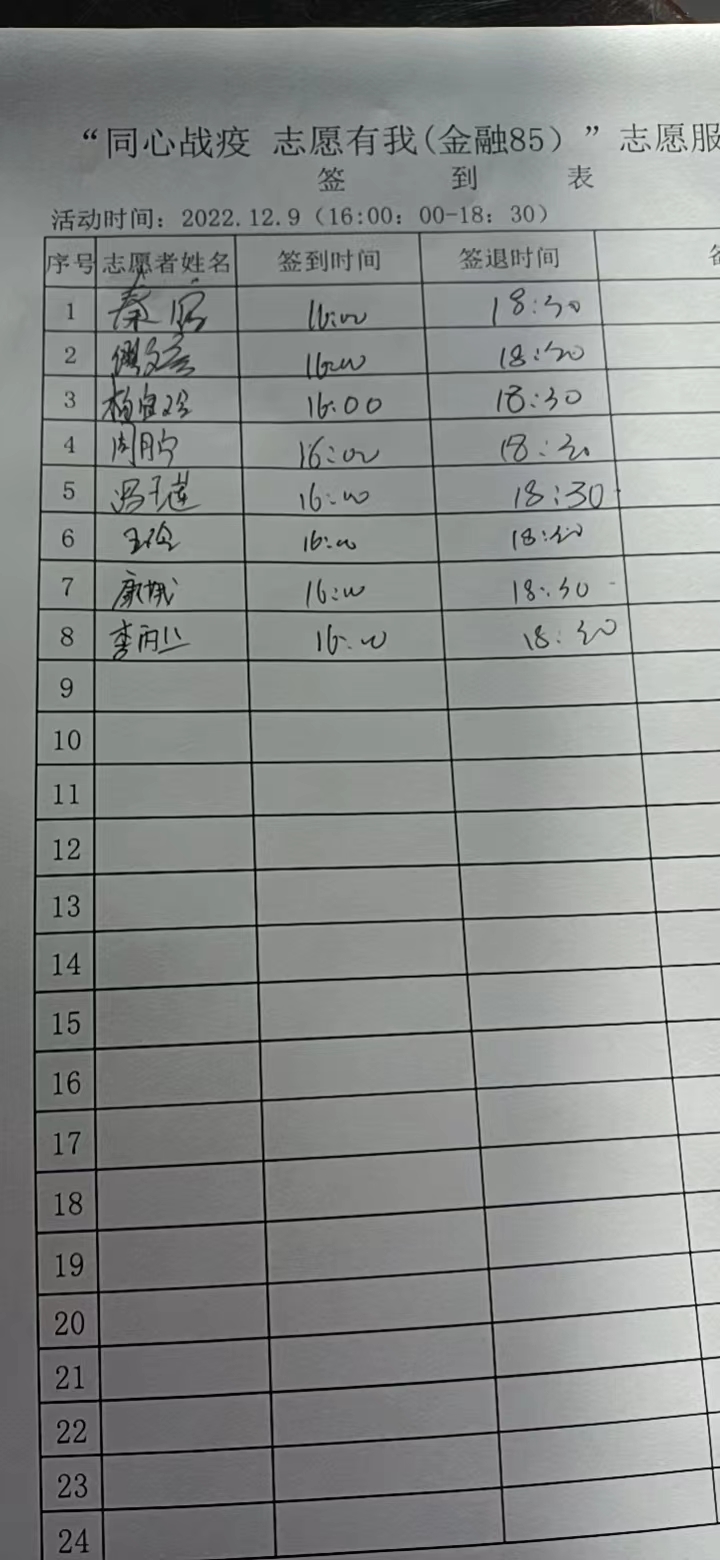 “同心战疫 志愿有我(金融85）”志愿服
签 到 表
活动时间：2022.12.9（16:00：00-18：30）
序号 志愿者姓名 签到时间 签退时间
1 秦 16:00 18:30
2 16:00 18:30
3 柏宜 16:00 18:30
4 周 16:00 18:30
5 冯 莲 16:00 18:30
6 王 16:00 18:30
7 康城 16:00 18:30
8 李丙 16:00 18:30
9
10
11
12
13
14
15
16
17
18
19
20
21
22
23
24